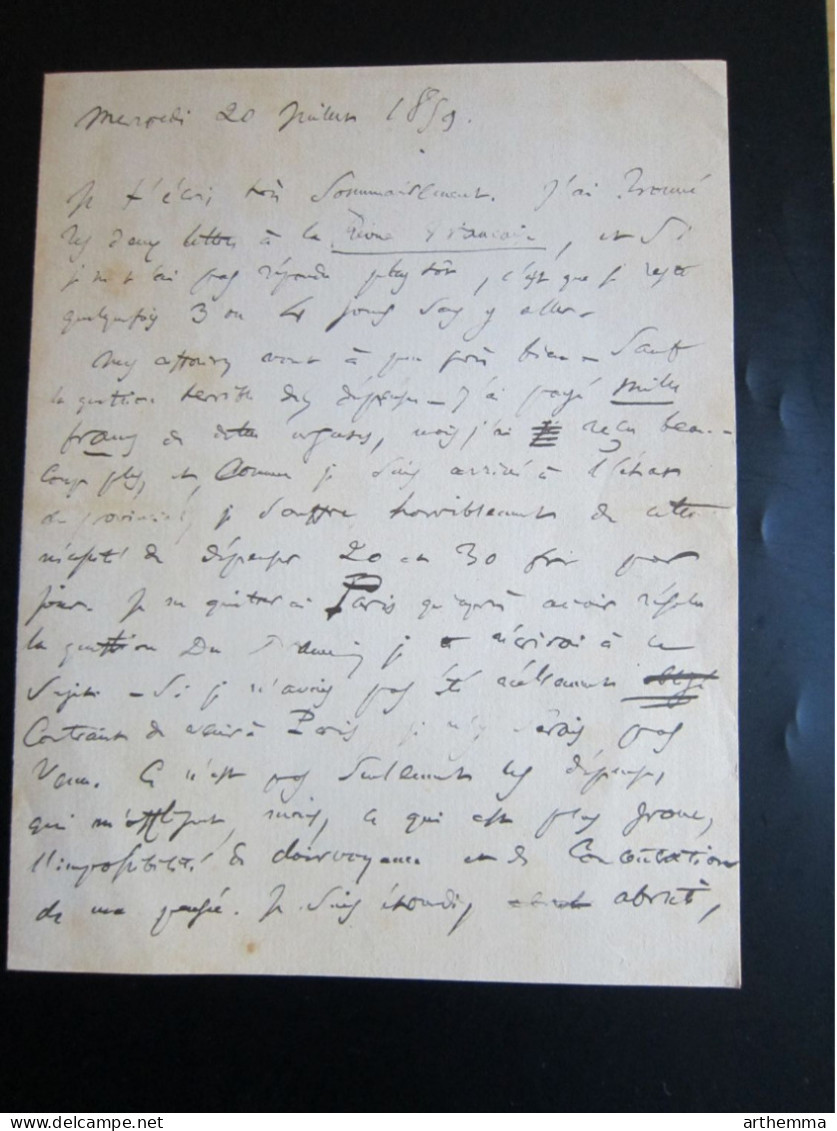 Mercredi 20 Juillet 1859.
Je t'écris très sommairement. J'ai trouvé
tes deux lettres à la Revue Française, et si
je ne t'ai pas répondu plus tôt, c'est que je reste
quelquefois 3 ou 4 jours sans y aller.
Mes affaires vont à peu près bien – sauf
la question terrible des dépenses – J'ai payé mille
francs de dettes urgentes, mais j'ai reçu beau-
coup plus, et, comme je suis arrivé à l'état
de provincial, je souffre horriblement de cette
nécessité de dépenser 20 ou 30 fr. par
jour. Je ne quitterai Paris qu'après avoir résolu
la question du je t'écrirai à ce
sujet – Si je n'avais pas été réellement
contraint de venir à Paris, je n'y serais pas
venu. Ce n'est pas seulement les dépenses,
qui m'affligent, mais, ce qui est plus grave,
l'impossibilité de clairvoyance et de concentration
de ma pensée. Je suis étourdi, abruti,
arthemma